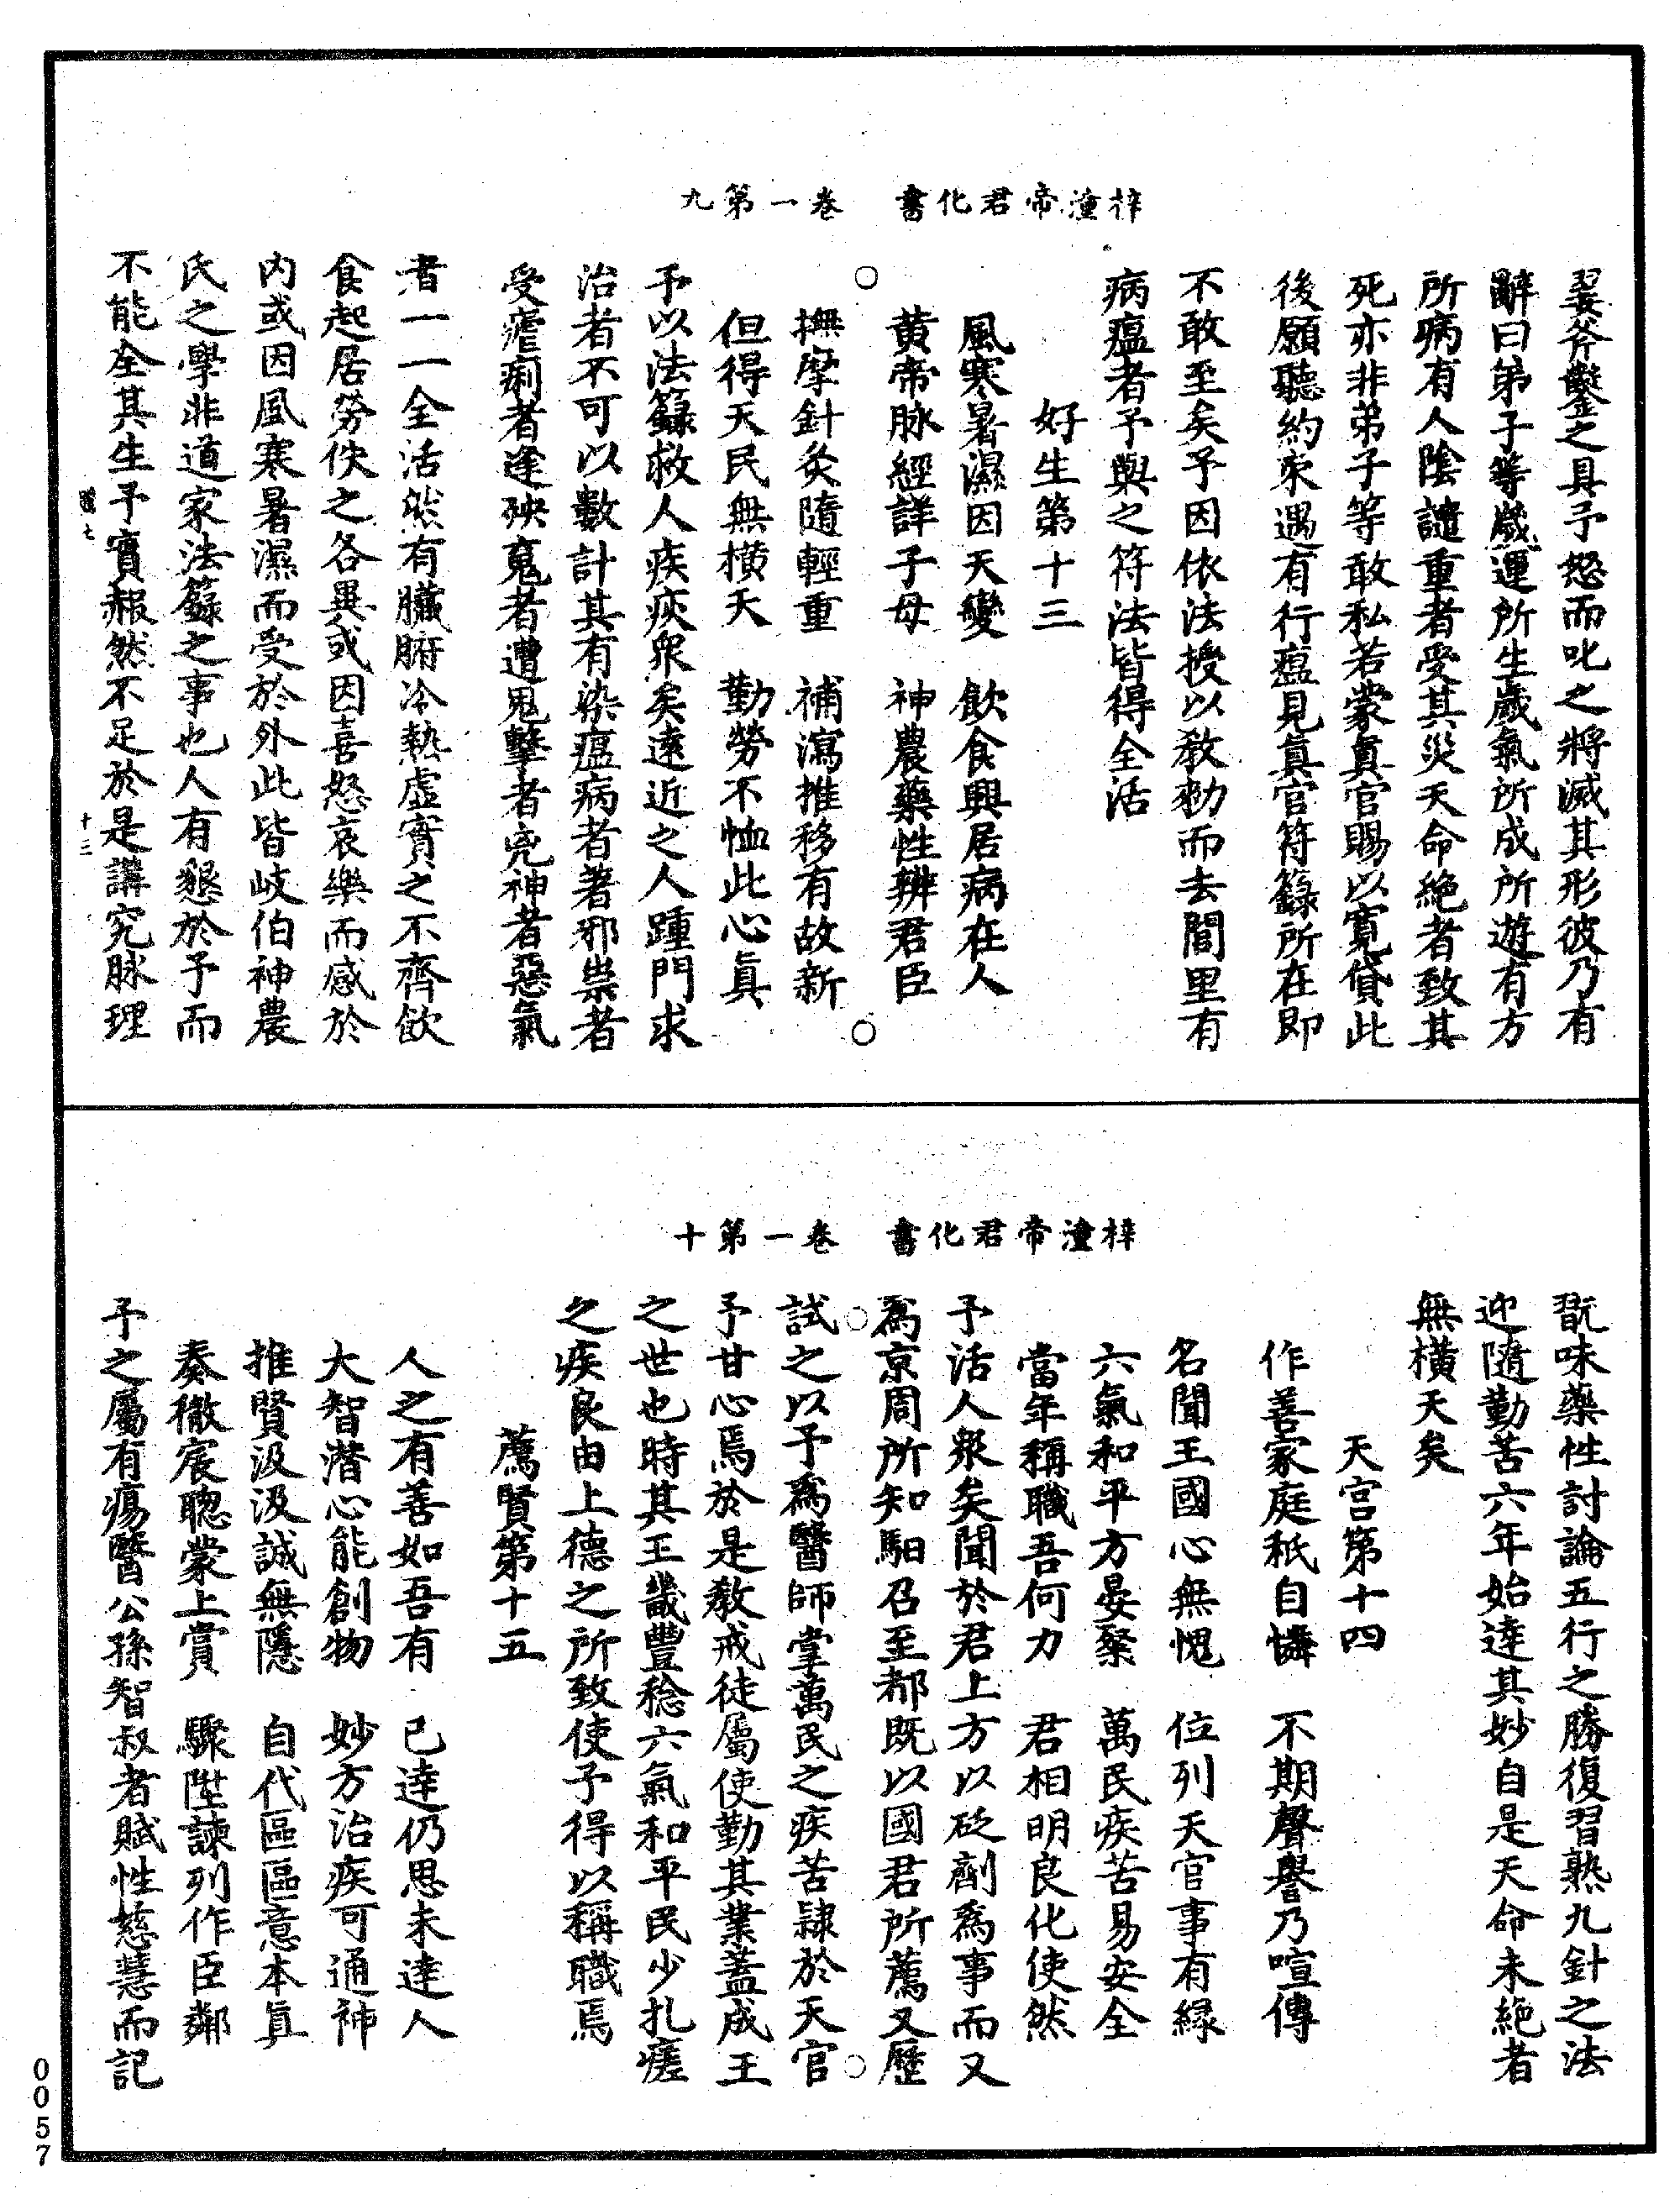 梓潼帝君化書　卷一第九
翣斧鑿之具予怒而叱之將滅其形彼乃有
辭曰弟子等歲運所生歲氣所成所遊有方
所病有人陰譴重者受其災天命絕者致其
死亦非弟子等敢私若蒙真官賜以寬貸此
後願聽約束遇有行瘟見真官符籙所在即
不敢至矣予因依法授以教勑而去閭里有
病瘟者予與之符法皆得全活
好生第十三
風寒暑濕因天變　飲食興居病在人
黃帝脉經詳子母　神農藥性辨君臣
撫摩針灸隨輕重　補瀉推移有故新
但得天民無橫夭　勤勞不恤此心眞
予以法籙救人疾疢衆矣遠近之人踵門求
治者不可以數計其有染瘟病者著邪祟者
受瘧痢者逢殃寃者遭鬼擊者兇神者惡氣
者一一全活然有臟腑冷熱虛實之不齊飲
食起居勞佚之各異或因喜怒哀樂而感於
內或因風寒暑濕而受於外此皆岐伯神農
氏之學非道家法籙之事也人有懇於予而
不能全其生予實赧然不足於是講究脉理
七
十三
梓潼帝君化書　卷一第十
翫味藥性討論五行之勝復習熟九針之法
迎隨勤苦六年始達其妙自是天命未絕者
無橫夭矣
天官第十四
作善家庭秖自憐　不期聲譽乃喧傳
名聞王國心無愧　位列天官事有緣
六氣和平方晏粲　萬民疾苦易安全
當年稱職吾何力　君相明良化使然
予活人衆矣聞於君上方以砭劑爲事而又
爲京周所知馹召至都既以國君所薦又歷
試之以予爲醫師掌萬民之疾苦隷於天官
予甘心焉於是敎戒徒屬使勤其業蓋成王
之世也時其王畿豐稔六氣和平民少札瘥
之疾良由上德之所致使予得以稱職焉
薦賢第十五
人之有善如吾有　已達仍思未達人
大智潛心能創物　妙方治疾可通神
推賢汲汲誠無隱　自代區區意本眞
奏徹宸聰蒙上賞　驟陞諫列作臣鄰
予之屬有瘍醫公孫智叔者賦性慈慧而記
0057